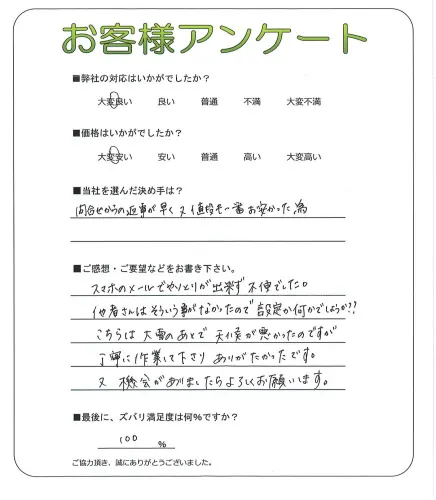 お客様アンケート
■弊社の対応はいかがでしたか？
大変良い　良い　普通　不満　大変不満
■価格はいかがでしたか？
大変安い　安い　普通　高い　大変高い
■当社を選んだ決め手は？
問合せからの返事が早く又値段も一番お安かった為
■ご感想・ご要望などをお書き下さい。
スマホのメールでやりとりが出来ず不便でした。
他者さんはそういう事がなかったので設定か何かでしょうか??
こちらは大雪のあとで天候が悪かったのですが
丁寧に作業して下さりありがたかったです。
又機会がありましたらよろしくお願いします。
■最後に、ズバリ満足度は何％ですか？
100 ％
ご協力頂き、誠にありがとうございました。